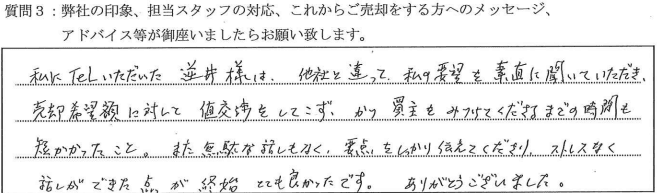 質問3：弊社の印象、担当スタッフの対応、これからご売却をする方へのメッセージ、
アドバイス等が御座いましたらお願い致します。
私にTelいただいた 逆井様は、他社と違って、私の要望を素直に聞いていただき、
売却希望額に対して 値交渉をしてこず、かつ 買主をみつけてくださるまでの時間も
短かかったこと。また無駄な話しもなく、要点をしっかり伝えてくださり、ストレスなく
話しができた点が 終始 とても良かったです。 ありがとうございました。